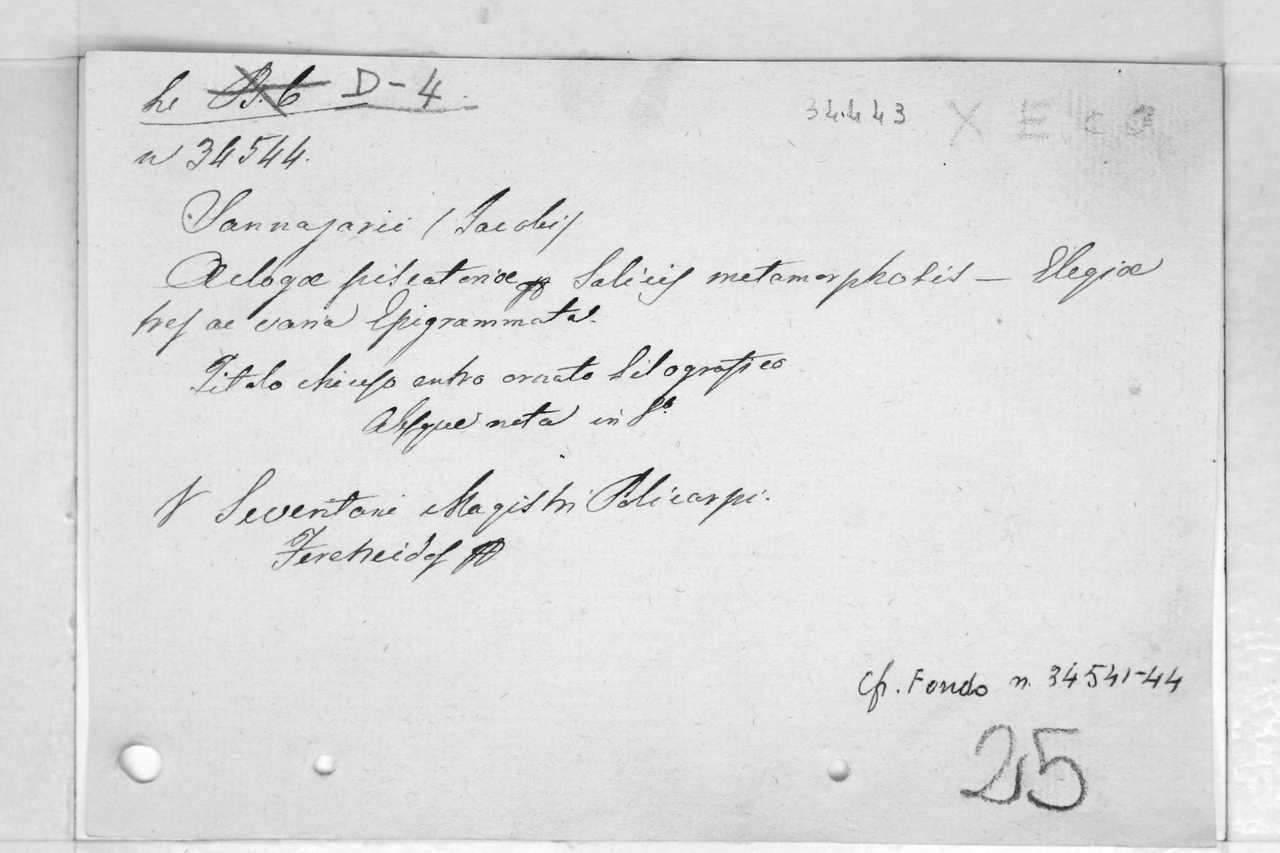 he B.6 D-4.
34.443 X E c a
n 34544.
Sannazarii (Jacobi)
Æclogæ piscatoriæ Salicis metamorphosis — Elegiæ
tres ac varia Epigrammata.
Titolo chiuso entro ornato silografico
Absque nota in 8º
V Severitani Magistri Policarpi.
Feretreidos
Cfr. Fondo n. 34541-44
25